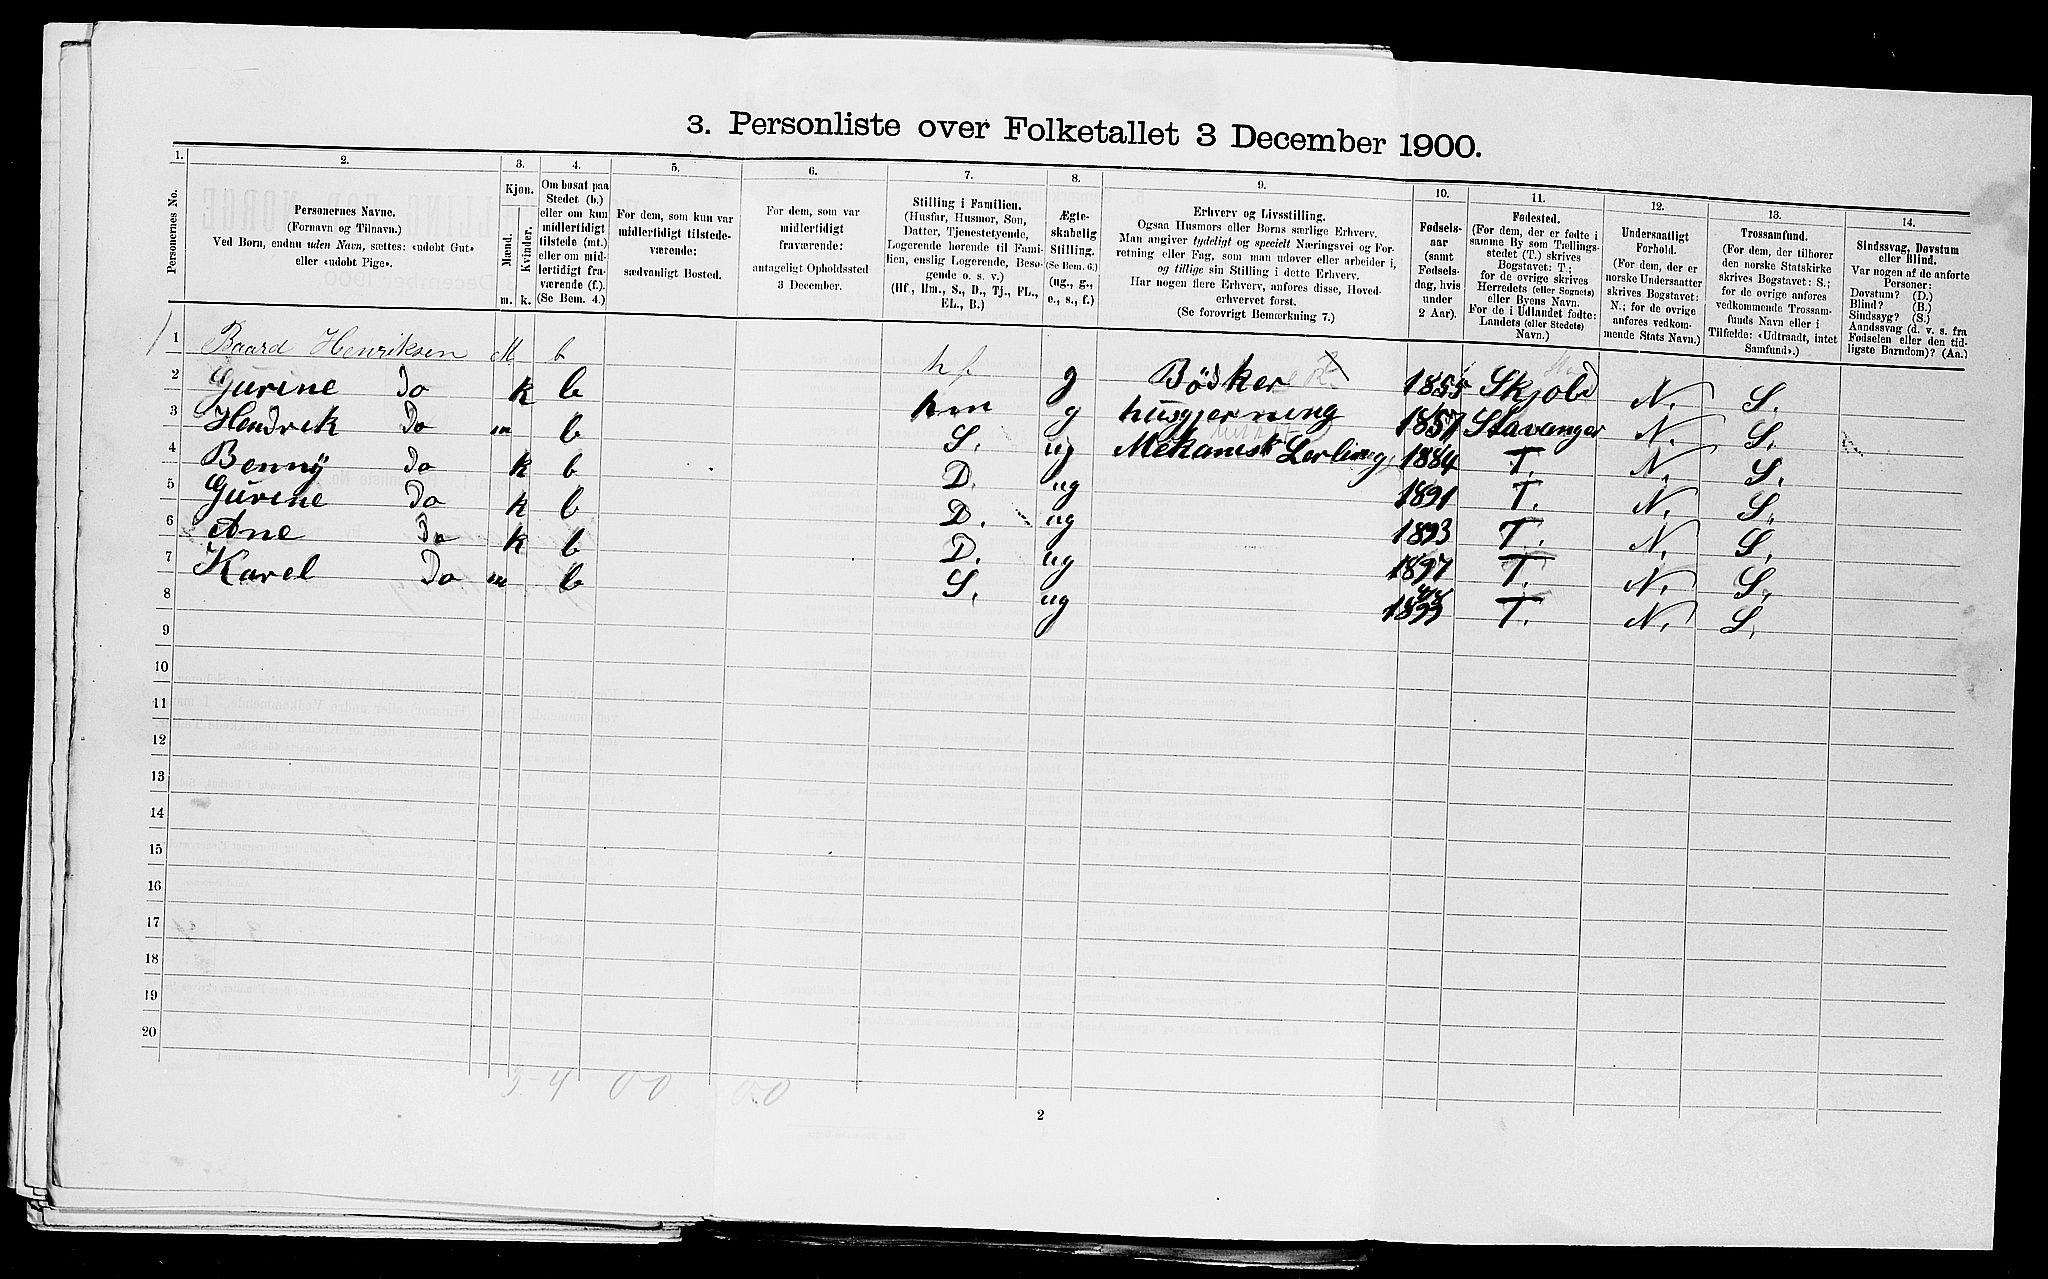 3. Personliste over Folketallet 3 December 1900.
1. 2. 3. 4. 5. 6. 7. 8. 9. 10. 11. 12. 13. 14.
Personernes No.
Personernes Navne.
(Fornavn og Tilnavn.)
Ved Børn, endnu uden Navn, sættes: «udøbt Gut»
eller «udøbt Pige».
Kjøn.
Mænd.
Kvinder.
m. k.
Om bosat paa
Stedet (b.)
eller om kun
midlertidigt
tilstede (mt.)
eller om mid-
lertidigt fra-
værende (f.).
(Se Bem. 4.)
For dem, som kun var
midlertidigt tilstede-
værende:
sædvanligt Bosted.
For dem, som var
midlertidigt
fraværende:
antageligt Opholdssted
3 December.
Stilling i Familien.
(Husfar, Husmor, Søn,
Datter, Tjenestetyende,
Logerende hørende til Fami-
lien, enslig Logerende, Besø-
gende o. s. v.)
(Hf., Hm., S., D., Tj., FL.,
EL., B.)
Ægte-
skabelig
Stilling.
(Se Bem. 6.)
(ug., g.,
e., s., f.)
Erhverv og Livsstilling.
Ogsaa Husmors eller Børns særlige Erhverv.
Man angiver tydeligt og specielt Næringsvei og For-
retning eller Fag, som man udøver eller arbeider i,
og tillige sin Stilling i dette Erhverv.
Har nogen flere Erhverv, anføres disse, Hoved-
erhvervet først.
(Se forøvrigt Bemærkning 7.)
Fødsels-
aar
(samt
Fødsels-
dag, hvis
under
2 Aar).
Fødested.
(For dem, der er fødte i
samme By som Tællings-
stedet (T.) skrives
Bogstavet: T.;
for de øvrige skrives
Herredets (eller Sognets)
eller Byens Navn.
For de i Udlandet fødte:
Landets (eller Stedets)
Navn.)
Undersaatligt
Forhold.
(For dem, der er
norske Undersaatter
skrives Bogstavet:
N.; for de øvrige
anføres vedkom-
mende Stats Navn.)
Trossamfund.
(For dem, der tilhører
den norske Statskirke
skrives Bogstavet: S.;
for de øvrige anføres
vedkommende Trossam-
funds Navn eller i
Tilfælde: «Udtraadt, intet
Samfund».)
Sindssvag, Døvstum
eller Blind.
Var nogen af de anførte
Personer:
Døvstum? (D.)
Blind? (B.)
Sindssyg? (S.)
Aandssvag (d. v. s. fra
Fødselen eller den tid-
ligste Barndom)? (Aa.)
1 Baard Henriksen M b hf g Bødker 1855 Skjold N. S.
2 Gurine Do k b hm g husgjerning 1857 Stavanger N. S.
3 Hendrik Do m b S. ug Mekanisk Lerling 1884 T. N. S.
4 Benny Do k b D. ug 1891 T. N. S.
5 Gurine Do k b D. ug 1893 T. N. S.
6 Ane Do k b D. ug 1897 T. N. S.
7 Karel Do m b S. ug 1899 T. N. S.
8
9
10
11
12
13
14
15
16
17
18
19
20
3-4 00 00
2